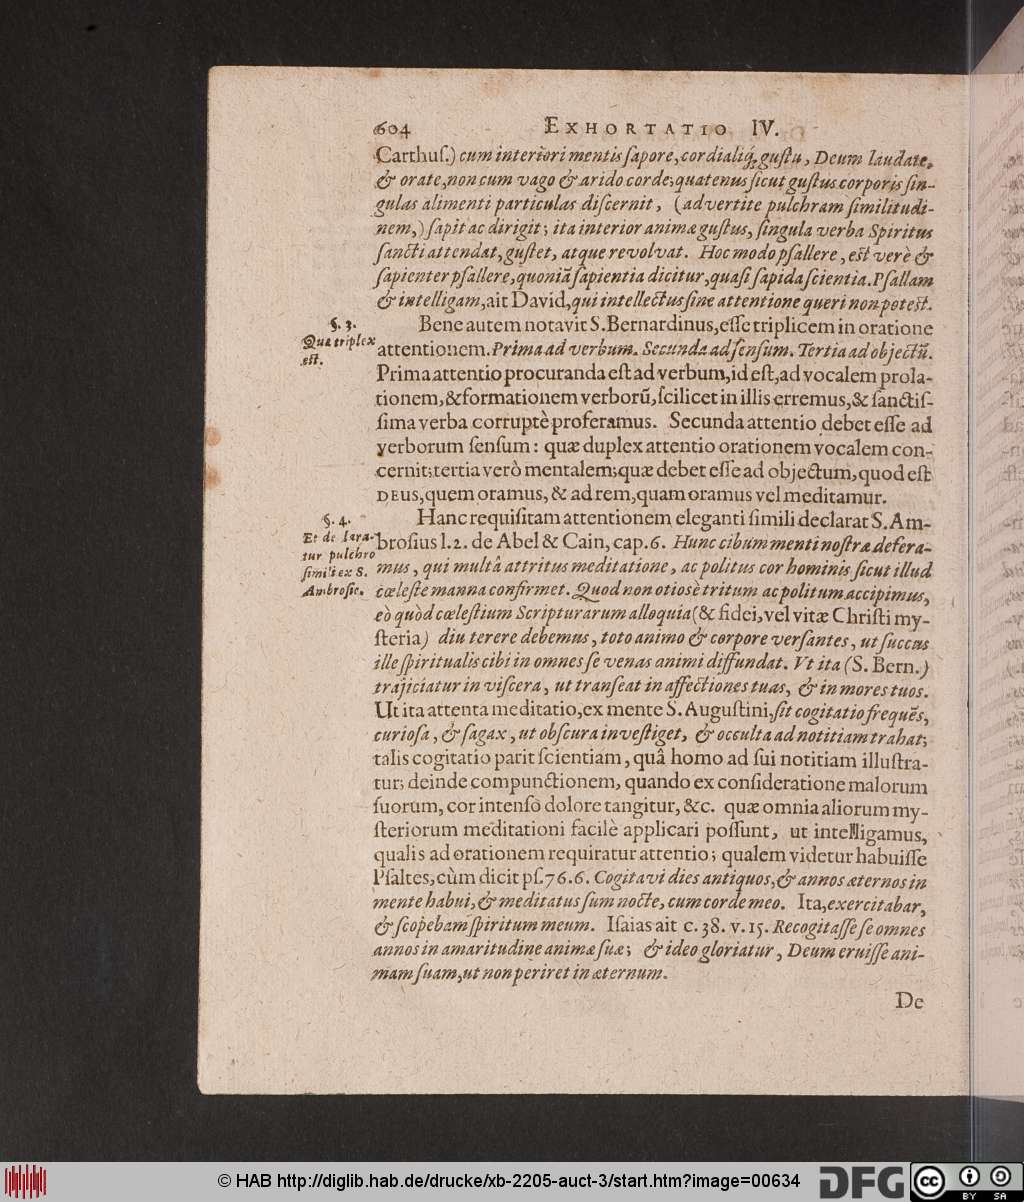 604 EXHORTATIO IV.
Carthuſ.) cum interiori mentis ſapore, cordialiq́; guſtu, Deum laudate,
& orate, non cum vago & arido corde; quatenus ſicut guſtus corporis ſin-
gulas alimenti particulas diſcernit, (advertite pulchram ſimilitudi-
nem,) ſapit ac dirigit; ita interior animæ guſtus, ſingula verba Spiritus
ſancti attendat, guſtet, atque revolvat. Hoc modo pſallere, eſt verè &
ſapienter pſallere, quoniã ſapientia dicitur, quaſi ſapida ſcientia. Pſallam
& intelligam, ait David, qui intellectus ſine attentione queri non poteſt.
§. 3.
Quæ triplex
eſt.
Bene autem notavit S. Bernardinus, eſſe triplicem in oratione
attentionem. Prima ad verbum. Secunda ad ſenſum. Tertia ad objectũ.
Prima attentio procuranda eſt ad verbum, id eſt, ad vocalem prola-
tionem, & formationem verborũ, ſcilicet in illis erremus, & ſanctiſ-
ſima verba corruptè proferamus. Secunda attentio debet eſſe ad
verborum ſenſum: quæ duplex attentio orationem vocalem con-
cernit; tertia verò mentalem; quæ debet eſſe ad objectum, quod eſt
DEUS, quem oramus, & ad rem, quam oramus vel meditamur.
§. 4.
Et de lara-
tur pulchro
ſimili ex S.
Ambroſio.
Hanc requiſitam attentionem eleganti ſimili declarat S. Am-
broſius l. 2. de Abel & Cain, cap. 6. Hunc cibum menti noſtræ defera-
mus, qui multâ attritus meditatione, ac politus cor hominis ſicut illud
cæleſte manna confirmet. Quod non otiosè tritum ac politum accipimus,
eò quòd cæleſtium Scripturarum alloquia (& fidei, vel vitæ Chriſti my-
ſteria) diu terere debemus, toto animo & corpore verſantes, ut ſuccus
ille ſpiritualis cibi in omnes ſe venas animi diffundat. Vt ita (S. Bern.)
trajiciatur in viſcera, ut tranſeat in affectiones tuas, & in mores tuos.
Ut ita attenta meditatio, ex mente S. Auguſtini, ſit cogitatio frequẽs,
curioſa, & ſagax, ut obſcura inveſtiget, & occulta ad notitiam trahat;
talis cogitatio parit ſcientiam, quâ homo ad ſui notitiam illuſtra-
tur; deinde compunctionem, quando ex conſideratione malorum
ſuorum, cor intenſo dolore tangitur, &c. quæ omnia aliorum my-
ſteriorum meditationi facilè applicari poſſunt, ut intelligamus,
qualis ad orationem requiratur attentio; qualem videtur habuiſſe
Pſaltes, cùm dicit pſ. 76. 6. Cogitavi dies antiquos, & annos æternos in
mente habui, & meditatus ſum nocte, cum corde meo. Ita, exercitabar,
& ſcopebam ſpiritum meum. Iſaias ait c. 38. v. 15. Recogitaſſe ſe omnes
annos in amaritudine animæ ſuæ; & ideo gloriatur, Deum eruiſſe ani-
mam ſuam, ut non periret in æternum.
De
© HAB http://diglib.hab.de/drucke/xb-2205-auct-3/start.htm?image=00634
DFG
cc BY SA